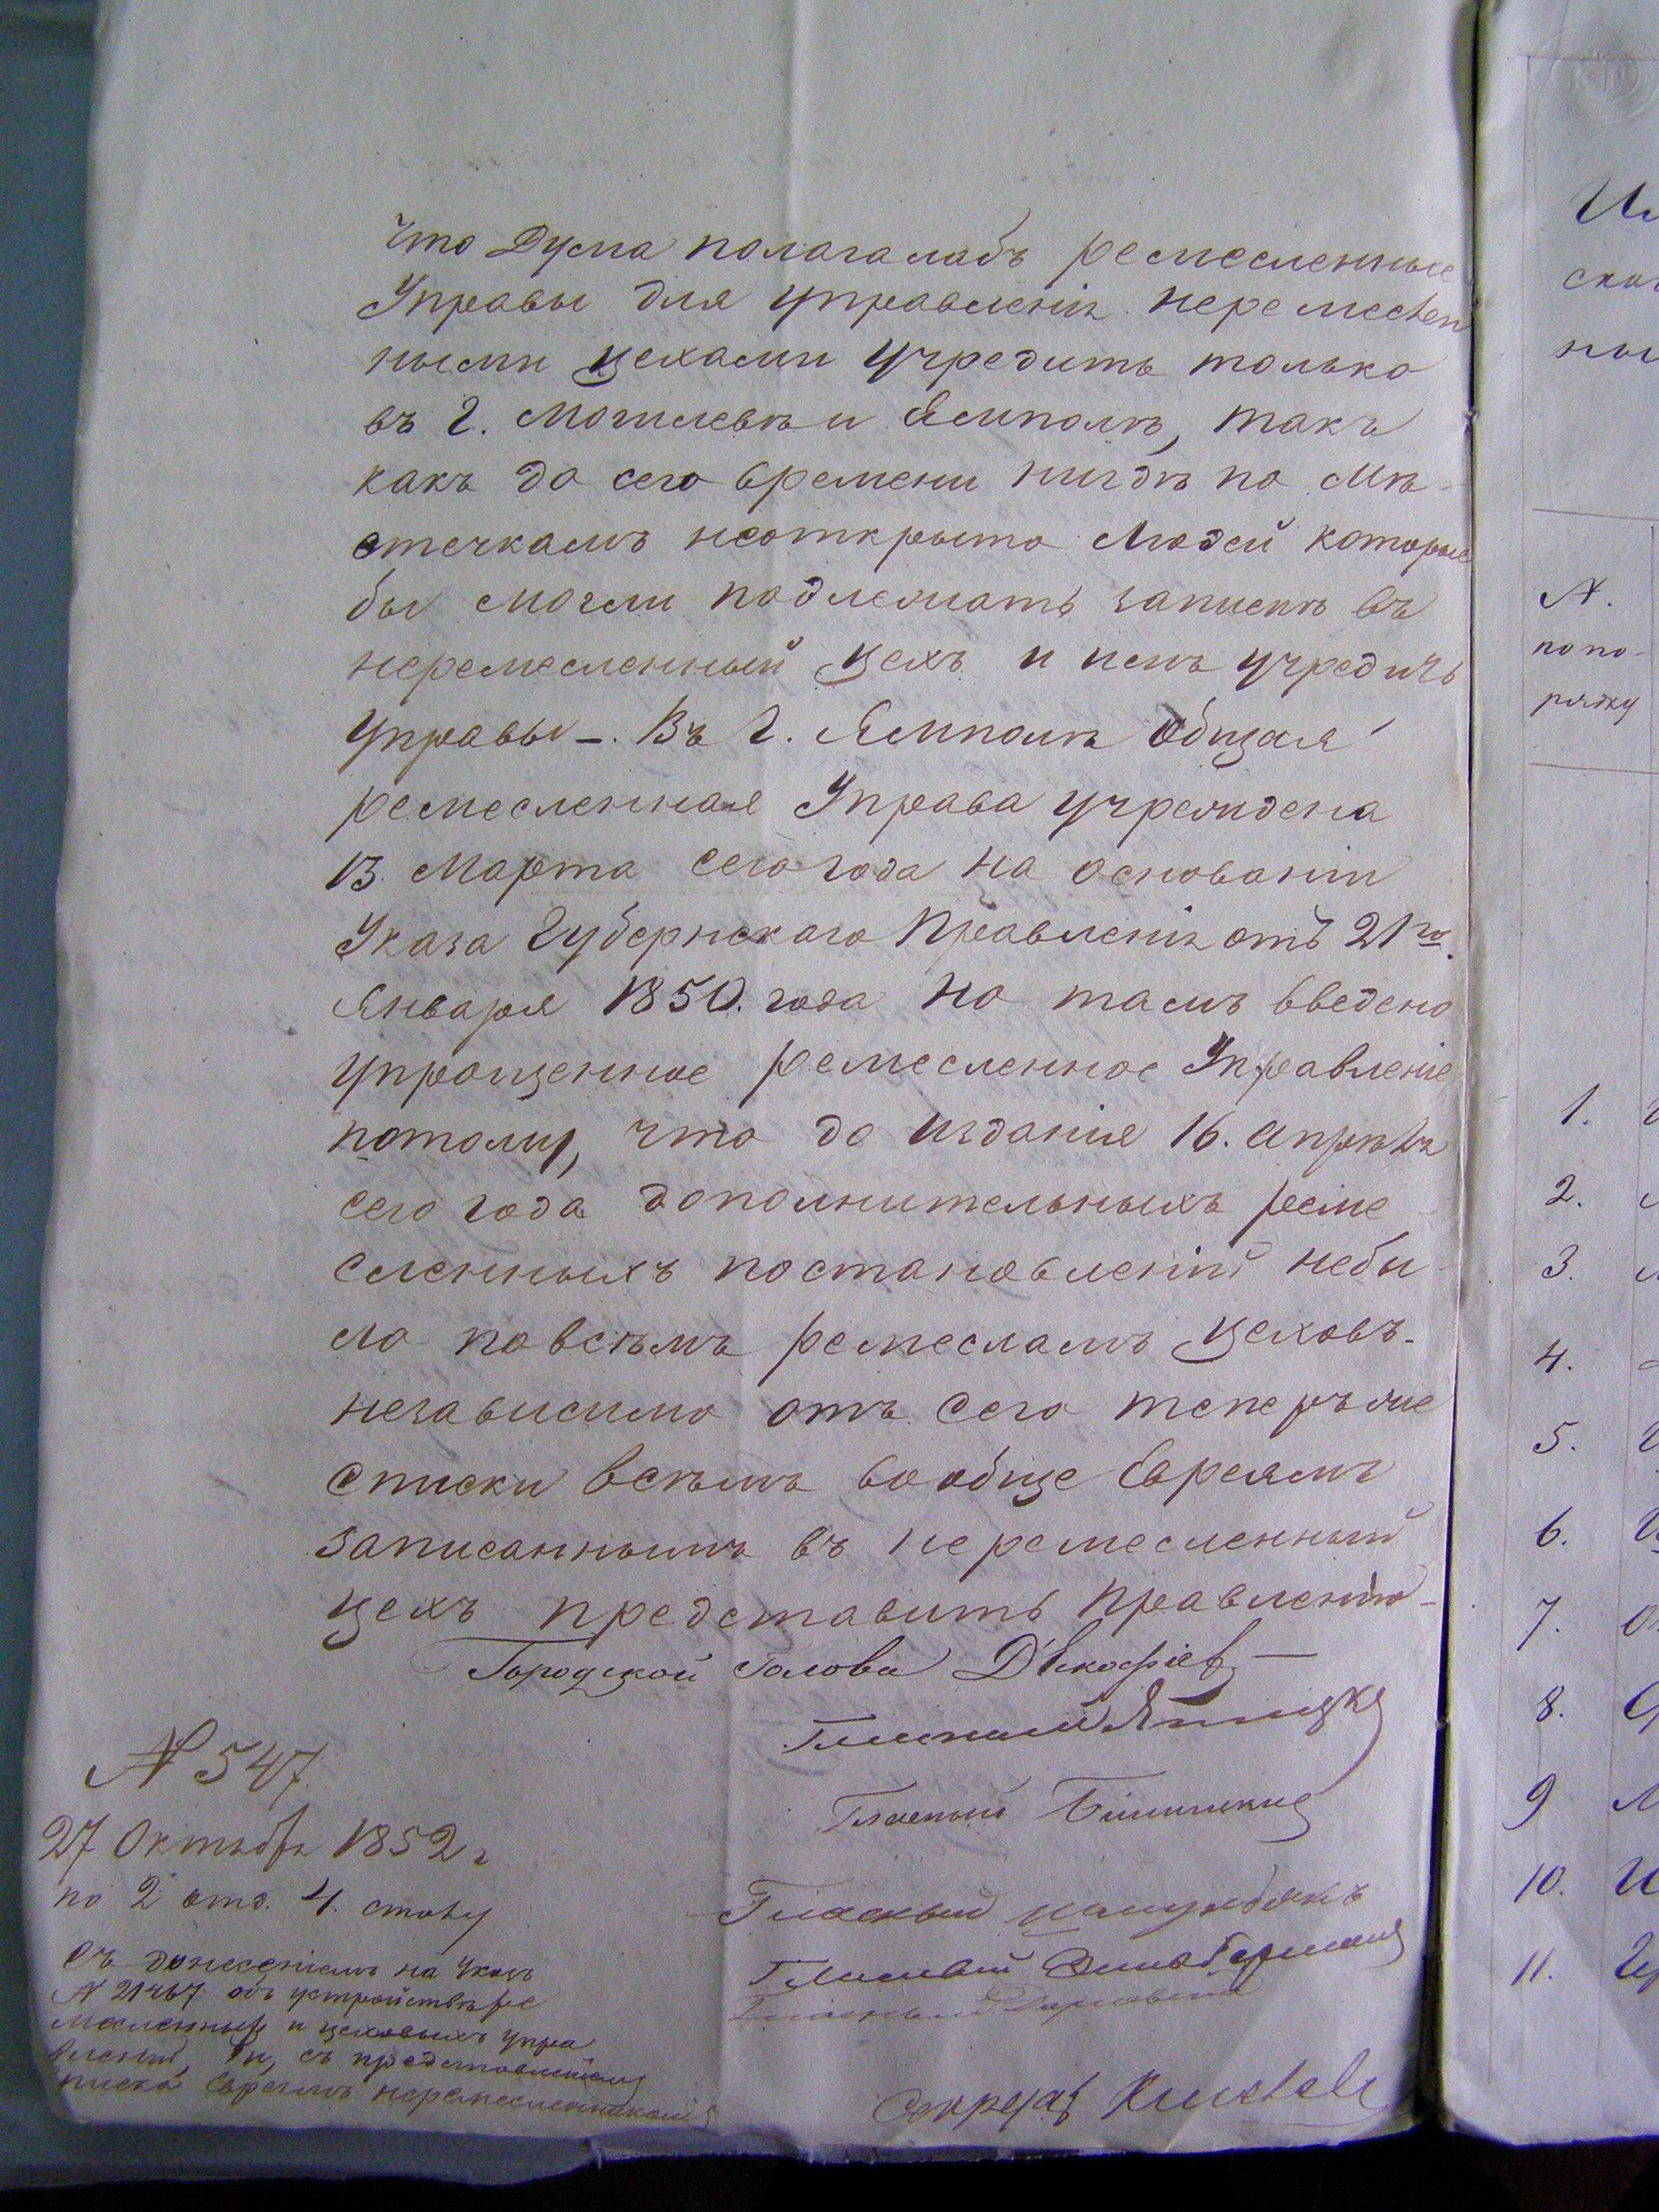 что Дума полагалабъ ремесленные
Управы для управленія неремеслен
ными цехами учредить только
въ г. Могилевѣ и Ямполѣ, такъ
какъ до сего времени нигдѣ по Мѣ-
стечкамъ неоткрыто Людей которые
бы могли подлежать запискѣ въ
неремесленный цехъ и имъ учредить
Управы-. Въ г. Ямполѣ Общая
ремесленная Управа учреждена
13. Марта сего года на основаніи
Указа Губернскаго Правленія отъ 21го.
Января 1850. года но тамъ введено
упрощенное ремесленное Управленіе
потому, что до изданія 16. Апрѣля
сего года дополнительныхъ реме
сленныхъ постановленій небы-
ло повсѣмъ ремесламъ цеховъ-
независимо отъ сего теперь же
списки всѣмъ вообще Евреямъ
записаннымъ въ неремесленный
цехъ представить Правленію-
Городской Голова
Гласный
Гласный
Гласный
Гласный
Гласный
Секретарь
N 547
27 Октября 1852 г
по 2 отд. 4. столу
Съ донесеніемъ на Указъ
N 21467 объ устройствѣ ре
месленныхъ и цеховыхъ упра
вленій, и, съ представленіемъ
списка Евреямъ неремесленникамъ
Ил
ска
ны
N.
по по-
рядку
1.
2.
3.
4.
5.
6.
7.
8.
9
10.
11.